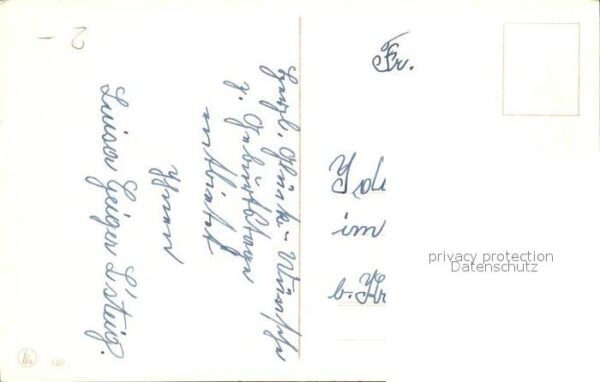 2 -
Herzl. Glück-Wünsche
z. Geburtstage
entbietet
Ihnen
Luisa Geiger L'steig.
Fr.
Ida
im
b. Kr
privacy protection
Datenschutz